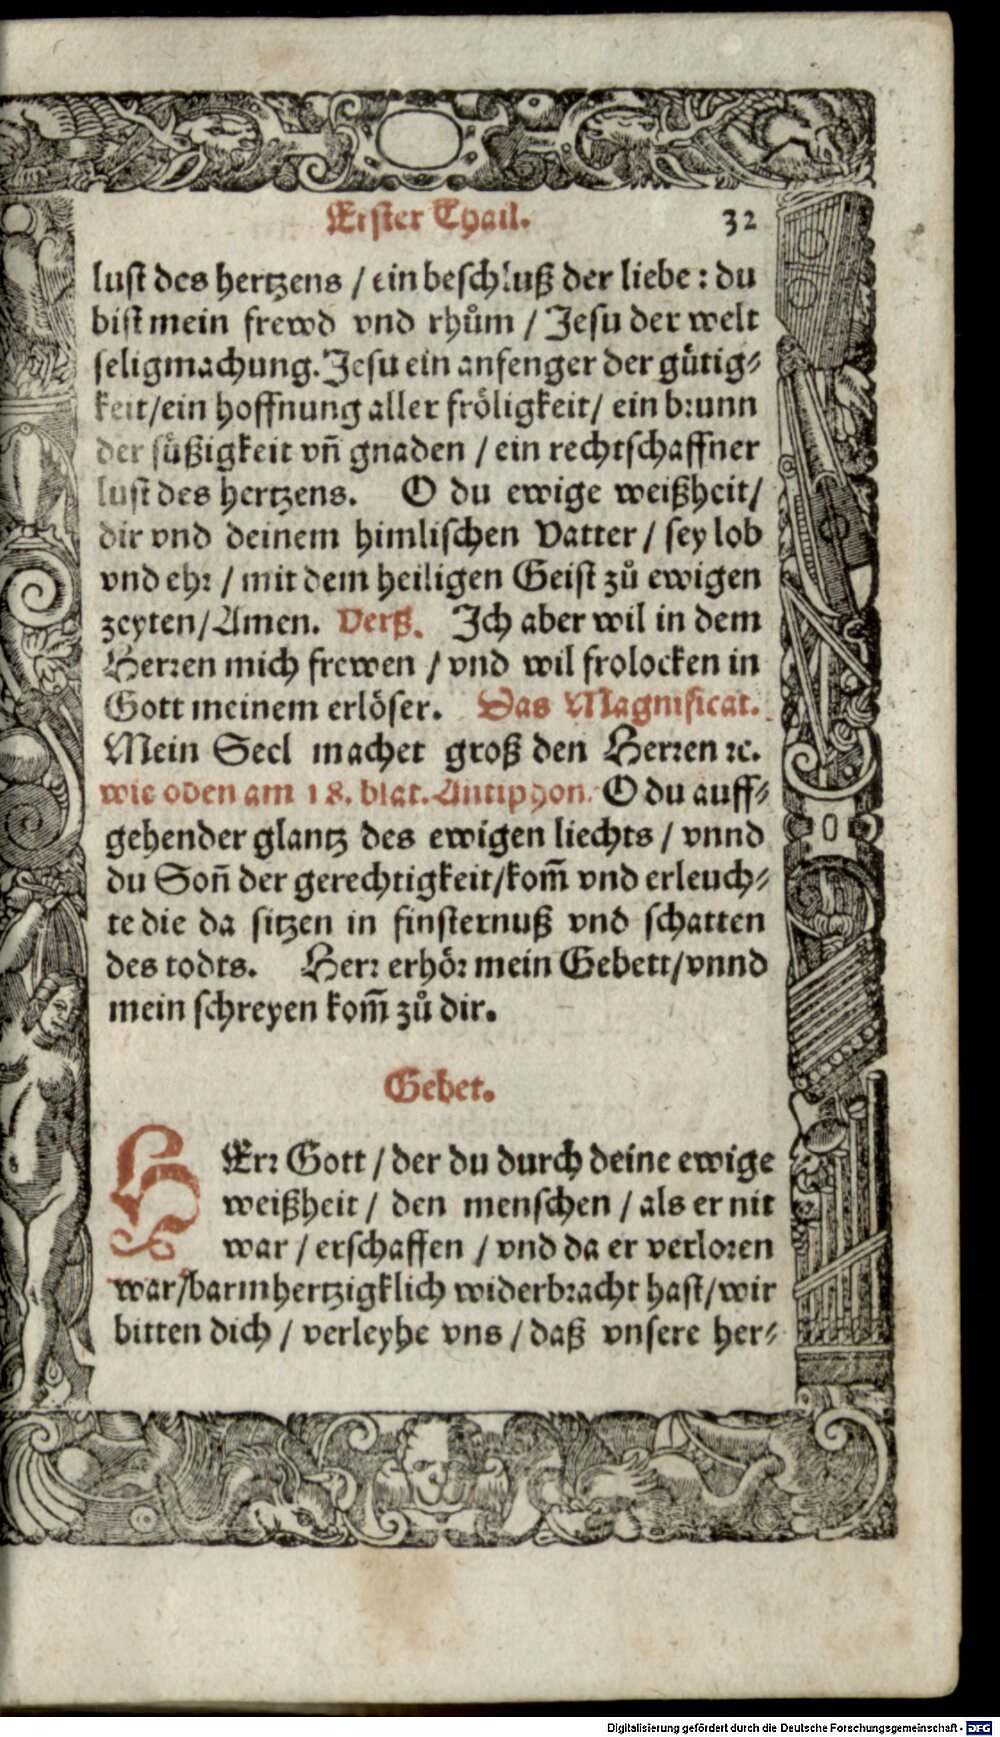 Erster Thail. 32
lust des hertzens / ein beschluß der liebe : du
bist mein frewd vnd rhům / Jesu der welt
seligmachung. Jesu ein anfenger der gütig⸗
keit/ein hoffnung aller fröligkeit/ ein brunn
der süßigkeit vñ gnaden / ein rechtschaffner
lust des hertzens. O du ewige weißheit/
dir vnd deinem himlischen Vatter / sey lob
vnd ehr / mit dem heiligen Geist zů ewigen
zeyten/Amen. Verß. Ich aber wil in dem
Herren mich frewen / vnd wil frolocken in
Gott meinem erlöser. Das Magnificat.
Mein Seel machet groß den Herren ꝛc.
wie oben am 18. blat. Antiphon. O du auff⸗
gehender glantz des ewigen liechts / vnnd
du Soñ der gerechtigkeit/kom̃ vnd erleuch⸗
te die da sitzen in finsternuß vnd schatten
des todts. Herr erhör mein Gebett/vnnd
mein schreyen kom̃ zů dir.
Gebet.
HErr Gott / der du durch deine ewige
weißheit / den menschen / als er nit
war / erschaffen / vnd da er verloren
war/barmhertzigklich widerbracht hast/wir
bitten dich / verleyhe vns / daß vnsere her⸗
Digitalisierung gefördert durch die Deutsche Forschungsgemeinschaft - DFG